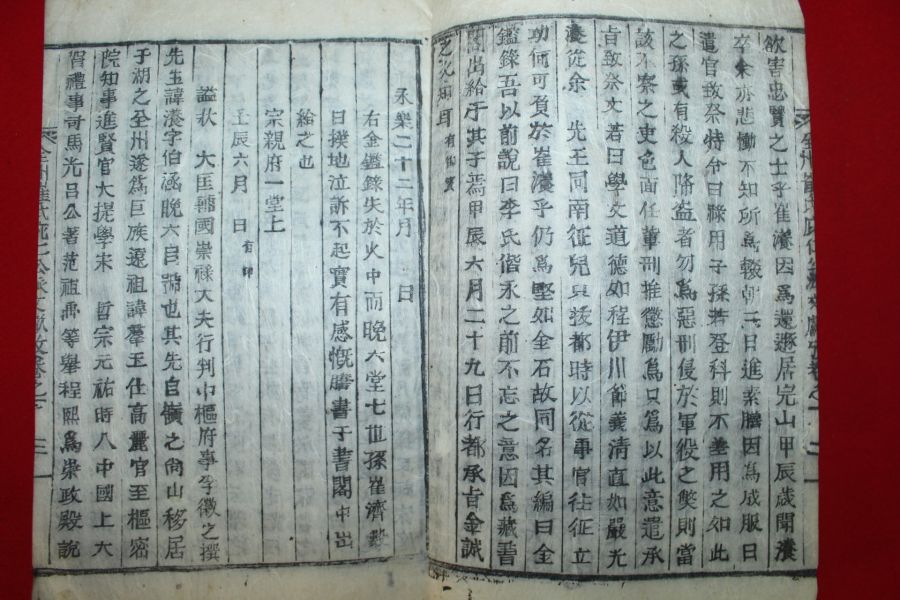 欲害忠賢之士乎崔瀁因爲還遯居完山甲辰歲聞瀁
卒余亦悲慟不知所爲輟朝三日進素膳因爲成服日
遣官致祭特令曰祿用子孫若登科則不差用之如此
之孫或有殺人降盜者勿爲惡刑侵於軍役之獘則當
該不察之吏色面任輩刑推懲勵爲只爲以此意遣承
旨致祭文若曰學文道德如程伊川節義淸直如嚴光
瀁從余 先王同南征兒只拔都時以從事官往征立
功何可負於崔瀁乎仍爲堅如金石故同名其編曰金
鑑錄吾以前說曰李氏偕永之前不忘之意因爲藏書
閣出給于其子焉甲辰六月二十九日行都承旨金誠
之次知耳
永樂二十二年月 日
右金鑑錄失於火中而晩六堂七世孫崔濟
日撲地泣訴不起實有感慨謄書于書閣中出
給之也
宗親府一堂上
壬辰六月 日 有印
諡狀 大匡輔國崇祿大夫行判中樞府事李徽之撰
先生諱瀁字伯涵晩六自號也其先自嶺之尙山移居
于湖之全州遂爲巨族遠祖諱羣玉仕高麗官至樞密
院知事進賢官大提學宋 哲宗元祐時入中國上六
習禮事司馬光呂公著范祖禹等擧程熙爲崇政殿說